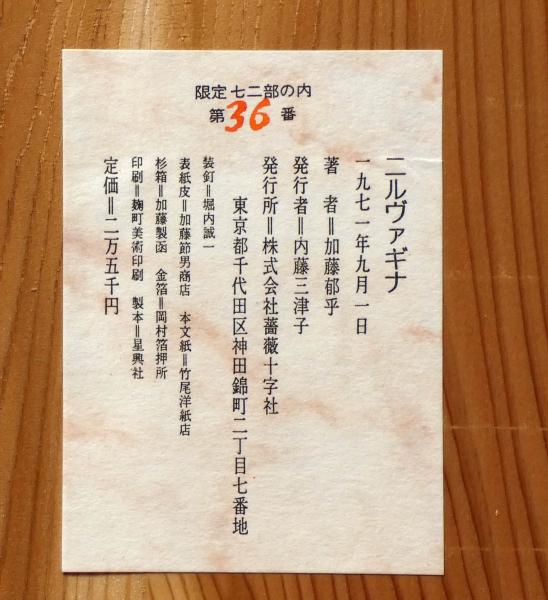 限定七二部の内
第36番
ニルヴァギナ
一九七一年九月一日
著　者＝加藤郁乎
発行者＝内藤三津子
発行所＝株式会社薔薇十字社
東京都千代田区神田錦町二丁目七番地
装釘＝堀内誠一
表紙皮＝加藤節男商店　本文紙＝竹尾洋紙店
杉箱＝加藤製函　金箔＝岡村箔押所
印刷＝麹町美術印刷　製本＝星興社
定価＝二万五千円